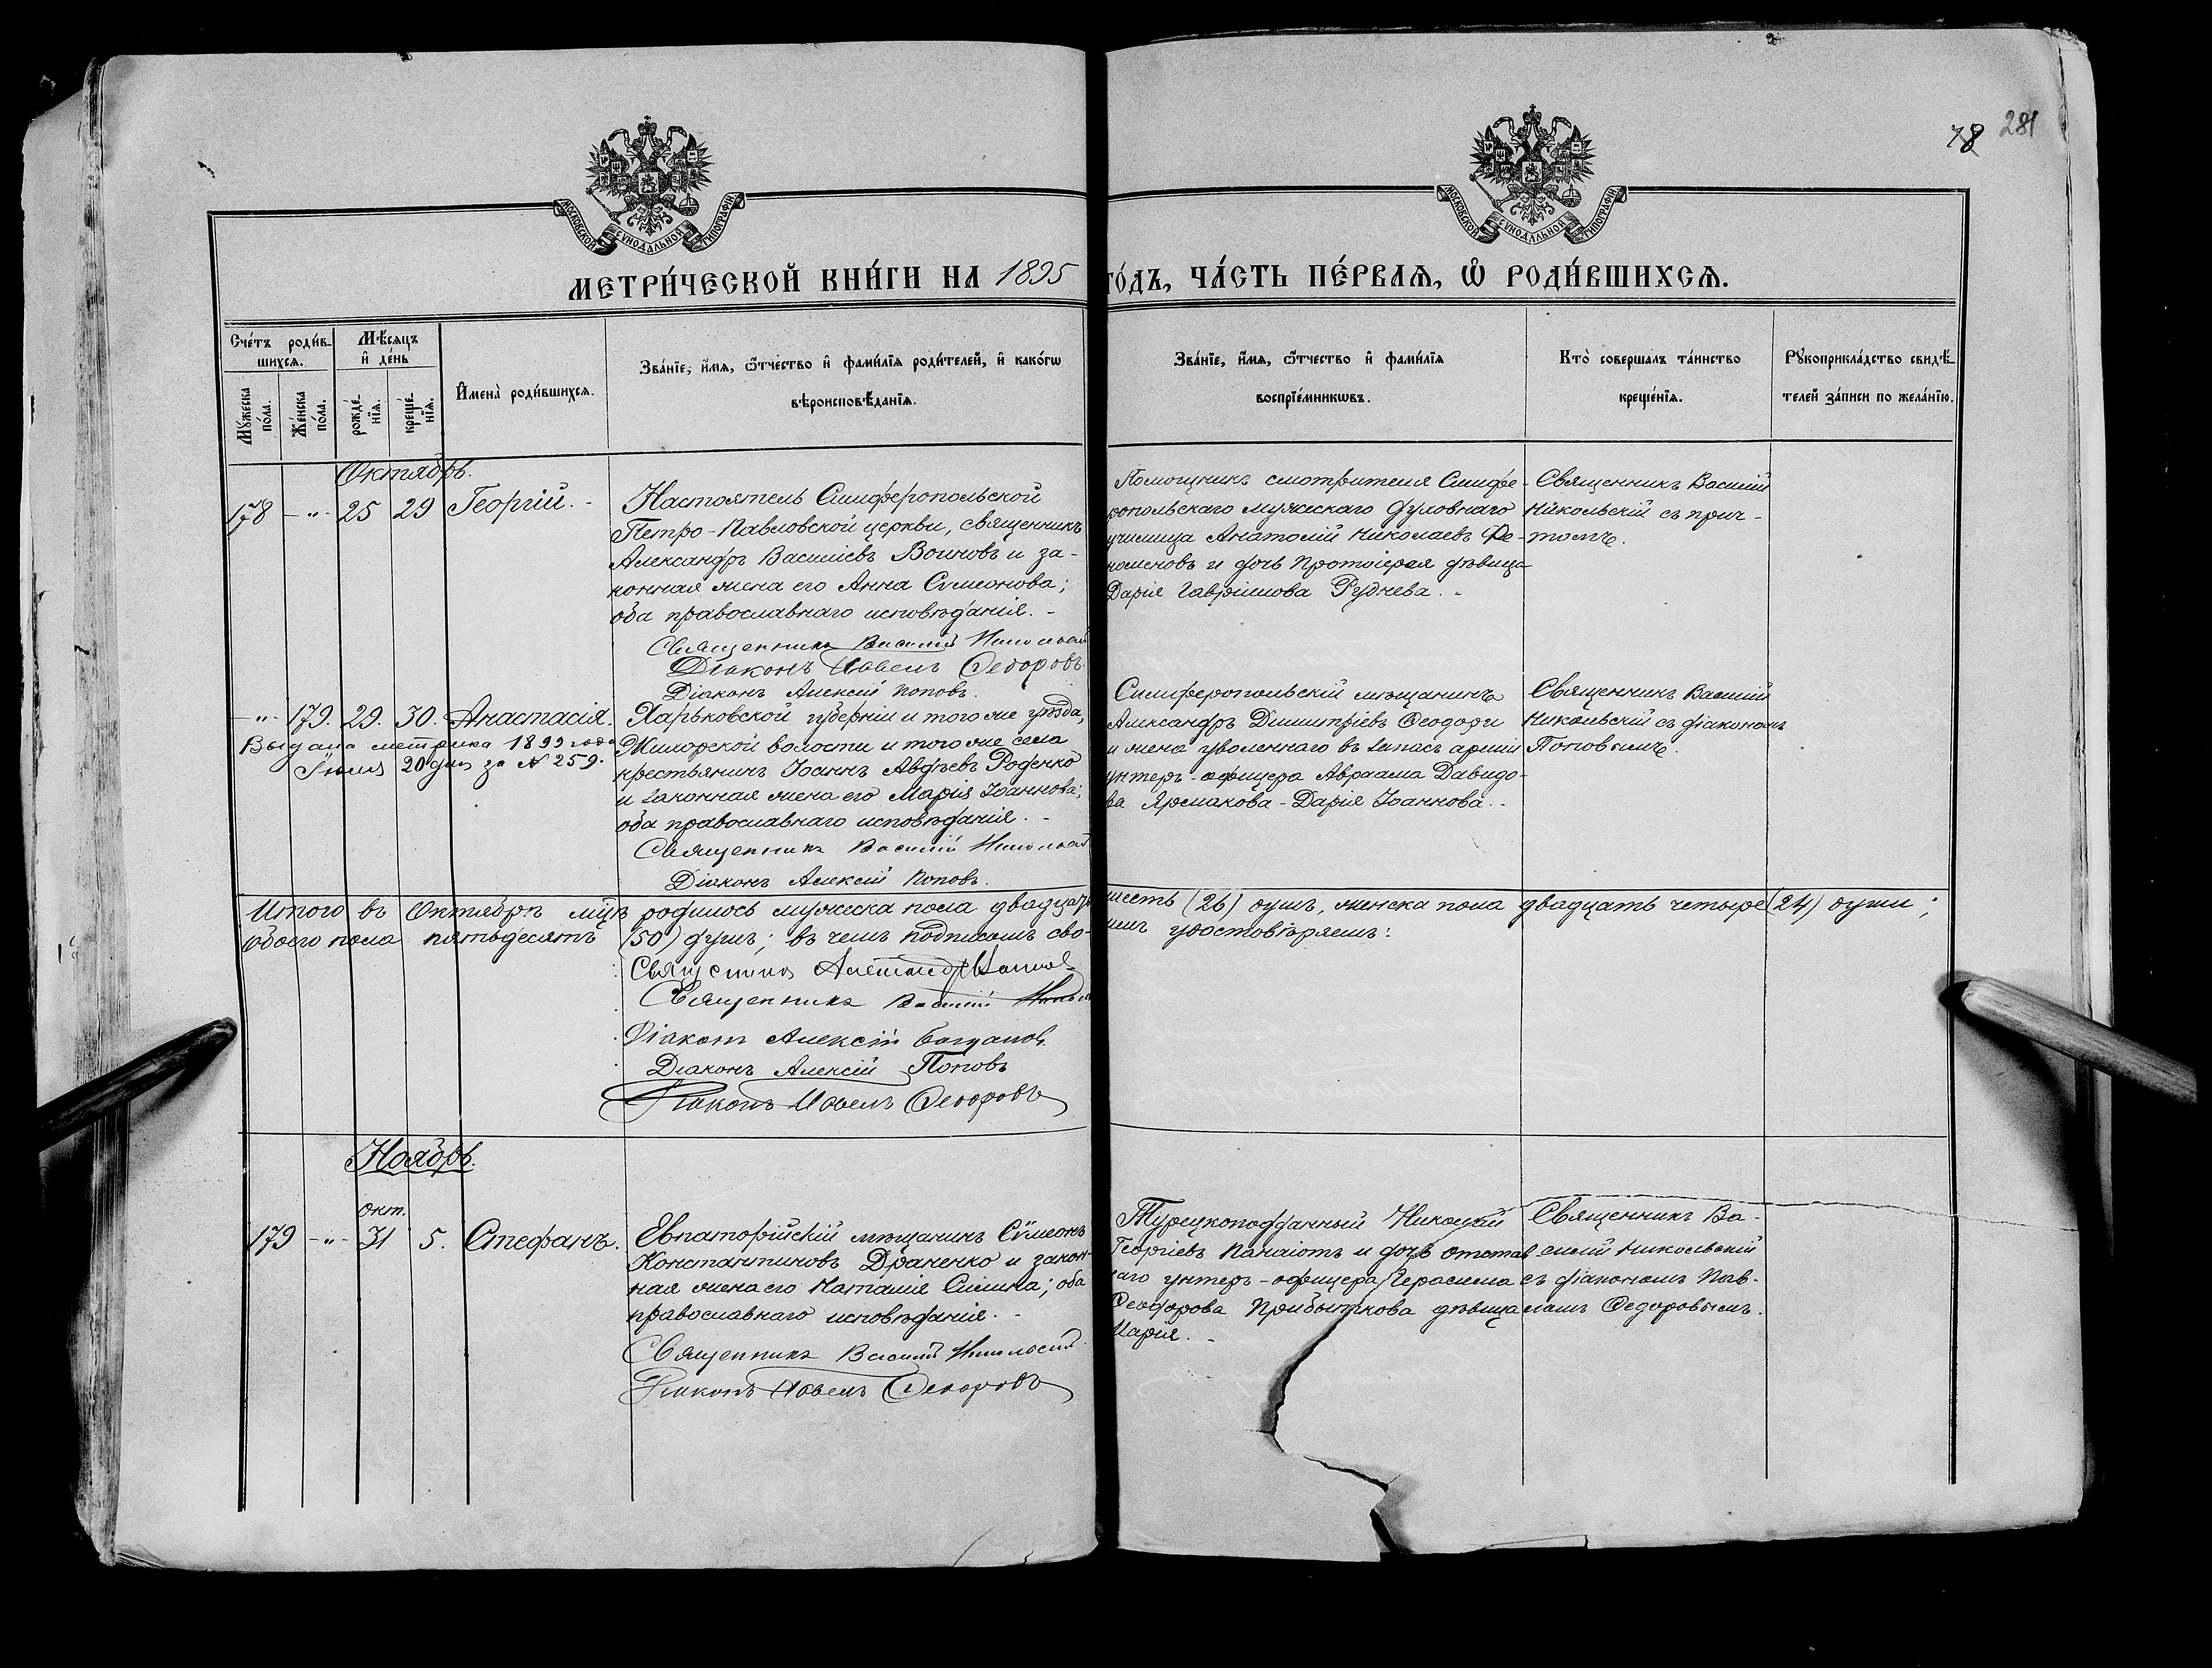 78 281
МОСКОВСКОЙ СУНОДАЛЬНОЙ ТИПОГРАФІИ
МОСКОВСКОЙ СУНОДАЛЬНОЙ ТИПОГРАФІИ
МЕТРИ́ЧЕСКОЙ КНИ́ГИ НА 1895 ГО́ДЪ, ЧА́СТЬ ПЕ́РВАЯ, Ѡ РОДИ́ВШИХСѦ.
Сче́тъ роди́в-
шихся.
Мѣ́сяцъ
и҆ де́нь
Мꙋ́жеска по́ла.
Же́нска по́ла.
рожде́-нїѧ.
креще́-нїѧ.
И҆мена̀ роди́вшихсѧ.
Зва́нїе, и҆́мѧ, ѻ҆́тчество и҆ фами́лїѧ роди́телей, и҆ како́гѡ
вѣроисповѣ́данїѧ.
Зва́нїе, и҆́мѧ, ѻ҆́тчество и҆ фами́лїѧ
воспрїе́мникѡвъ.
Кто̀ соверша́лъ та́инство
креще́нїѧ.
Рꙋкоприкла́дство свидѣ́-
телей за́писи по жела́нїю.
Октябрь.
178 - " - 25 29 Георгій. -
Настоятель Симферопольской
Петро-Павловской церкви, священникъ
Александръ Василіевъ Воиновъ и за-
конная жена его Анна Сѵмеонова;
оба православнаго исповѣданія. -
Священникъ Василій Никольскій
Діаконъ Павелъ Ѳедоровъ.
Діаконъ Алексій Поповъ.
Помощникъ смотрителя Симфе-
ропольскаго мужескаго духовнаго
училища Анатолій Николаевъ Фе-
номеновъ и дочь Протоіерея дѣвица
Дарія Гавріилова Руднева. -
Священникъ Василій
Никольскій съ прич-
томъ.
- " - 179. 29. 30. Анастасія.
Выдана метрика 1899 года
Іюля 20 дня за № 259.
Харьковской губерніи и того же уѣзда,
Жихорской волости и того же села
крестьянинъ Іоаннъ Авдѣевъ Роденко
и законная жена его Марія Іоаннова;
оба православнаго исповѣданія. -
Священникъ Василій Никольскій
Діаконъ Алексій Поповъ.
Симферопольскій мѣщанинъ
Александръ Димитріевъ Ѳеодори
и жена уволеннаго въ запасъ арміи
унтеръ-офицера Авраама Давидо-
ва Ярмакова - Дарія Іоаннова. -
Священникъ Василій
Никольскій съ діакономъ
Поповымъ.
Итого въ Октябрѣ мцѣ родилось мужеска пола двадцать шесть (26) душъ, женска пола двадцать четыре (24) души;
обоего пола пятьдесятъ (50) душъ; въ чемъ подписомъ сво- имъ удостовѣряемъ:
Священникъ Александръ
Священникъ Василій
Діаконъ Алексій
Діаконъ Алексій Поповъ
Діаконъ Павелъ Ѳедоровъ
Ноябрь.
окт.
179 - " - 31 5. Стефанъ.
Евпаторійскій мѣщанинъ Сѵмеонъ
Константиновъ Драненко и закон-
ная жена его Наталія Силина; оба
православнаго исповѣданія. -
Священникъ Василій Никольскій
Діаконъ Павелъ Ѳедоровъ
Турецкоподданный Николай
Георгіевъ Панаіотъ и дочь отстав-
наго унтеръ-офицера Герасима
Ѳеодорова Прибыткова дѣвица
Марія. -
Священникъ Ва-
силій Никольскій
съ діакономъ Пав-
ломъ Ѳедоровымъ.